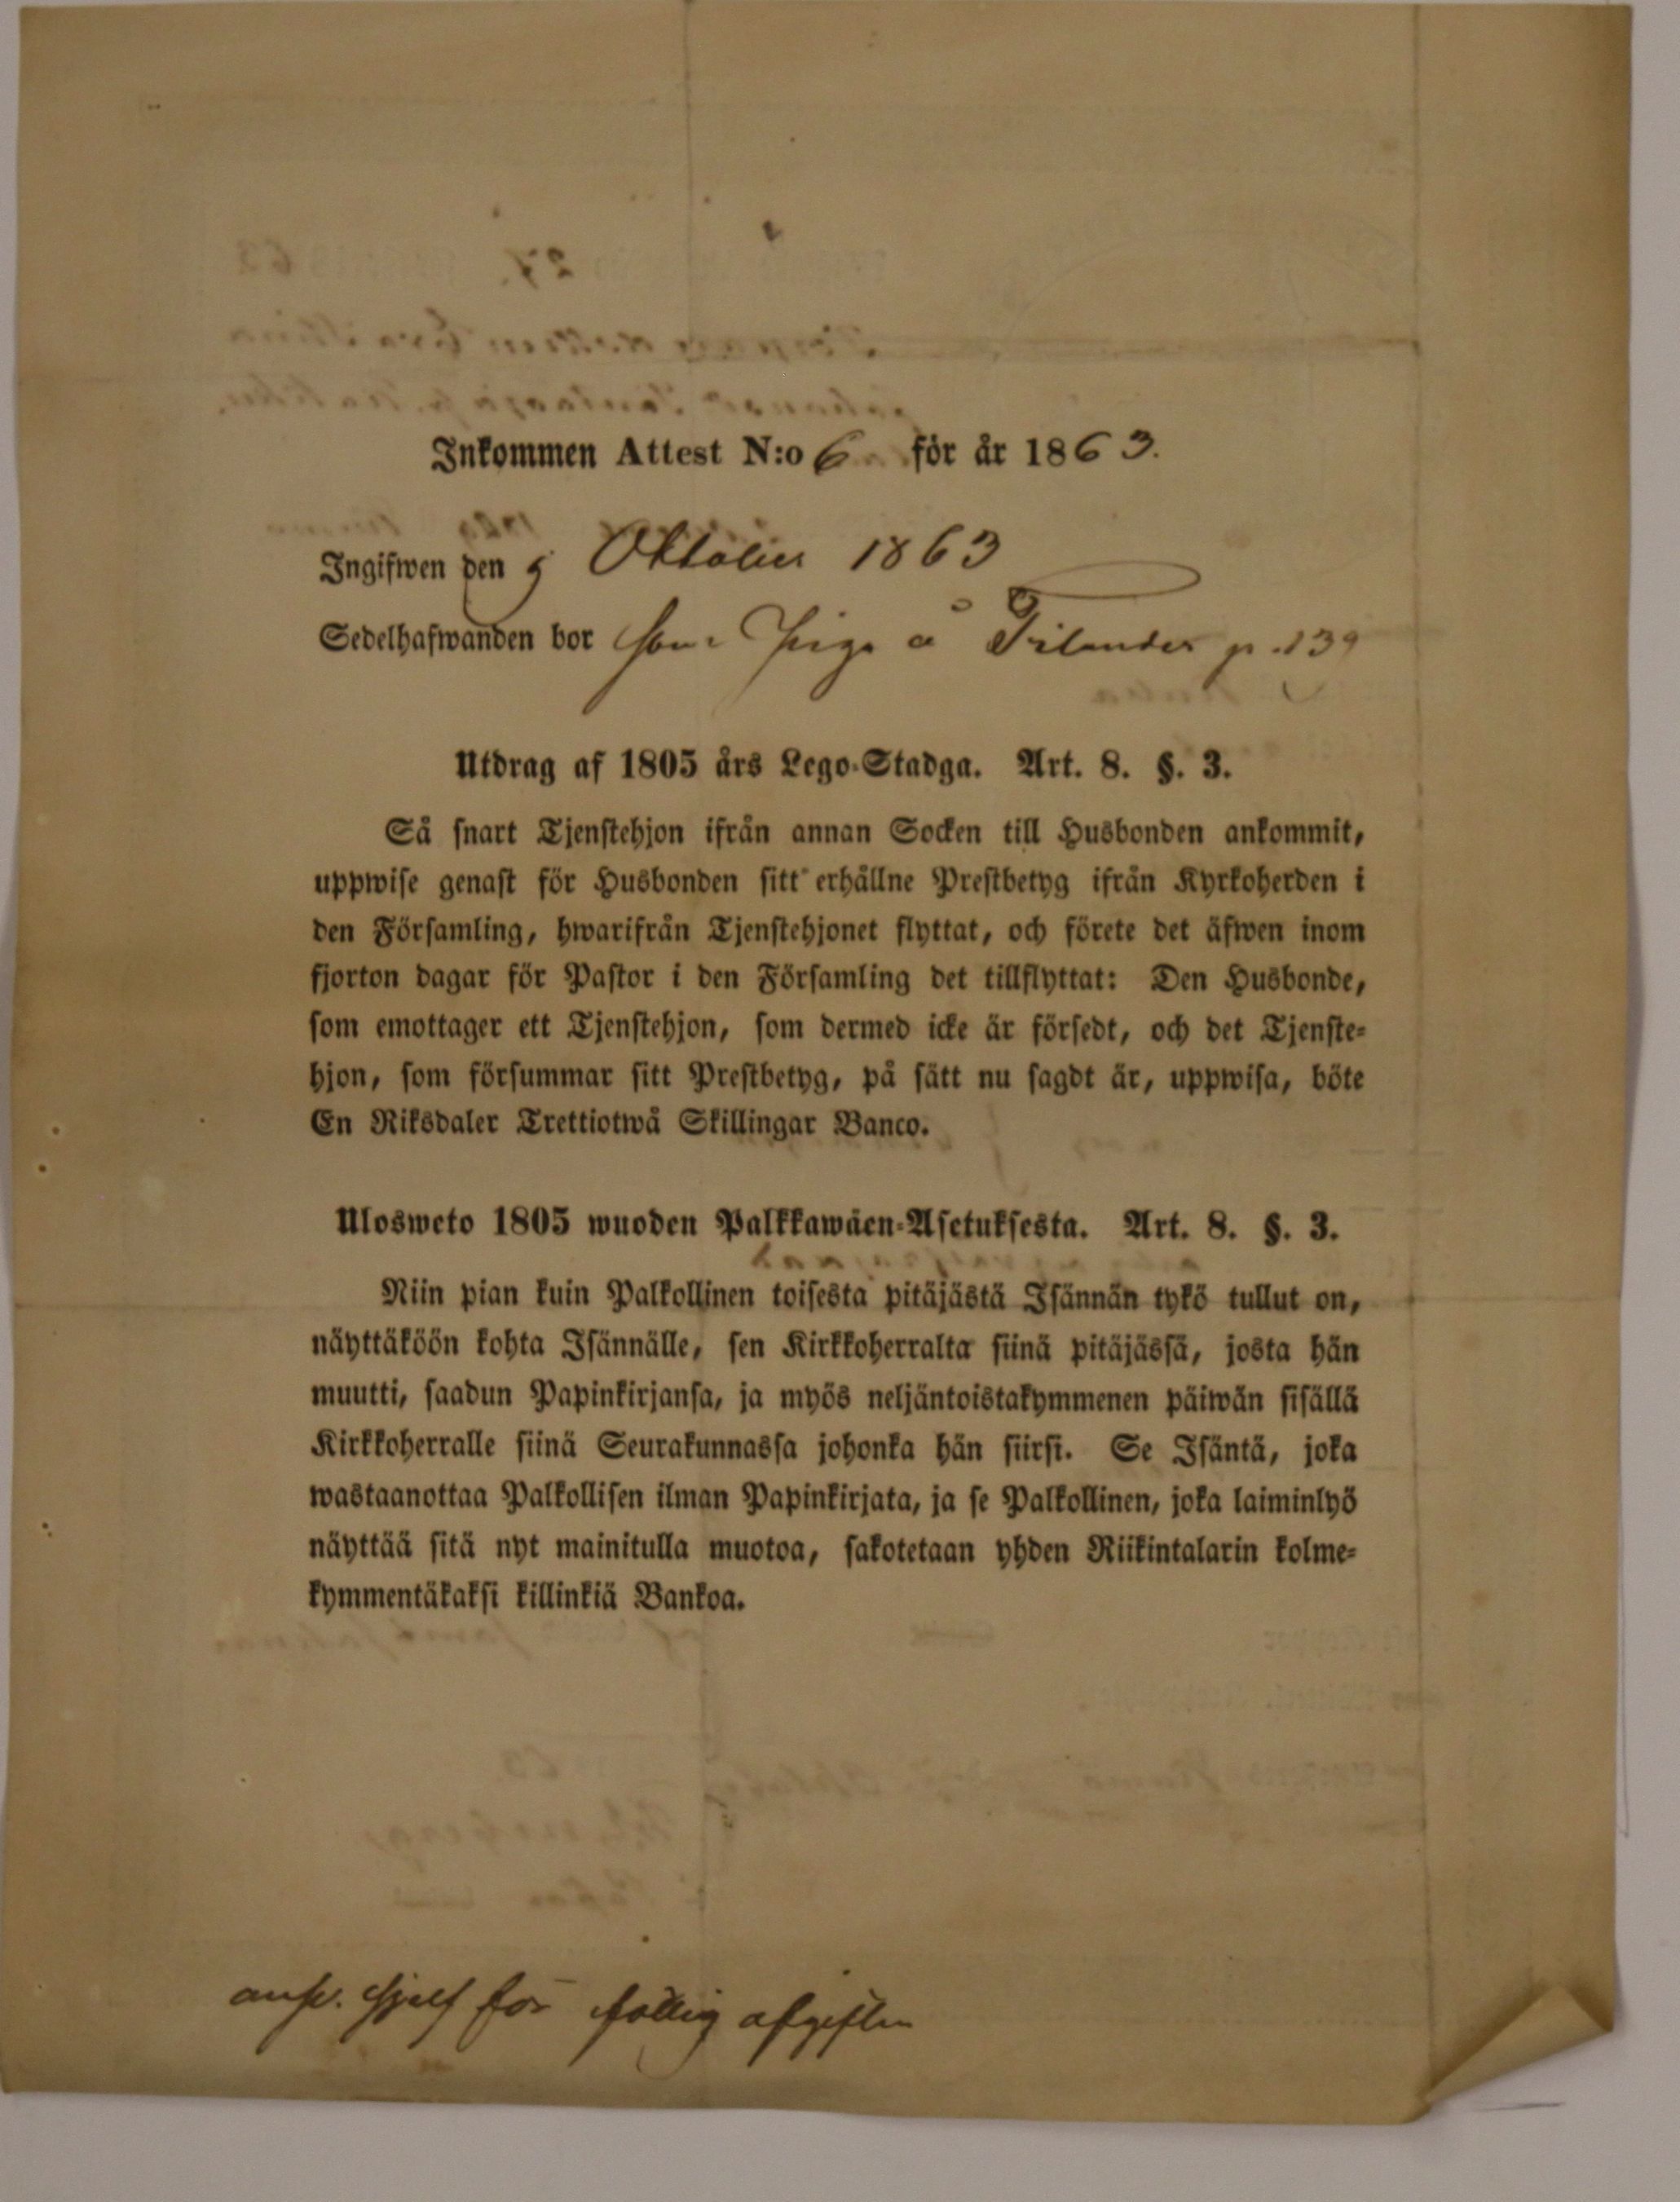 Inkommen Attest N:o 6 för år 1863.
Ingifwen den 9 Oktober 1863
Sedelhafwanden bor som Piga å Frilander p. 139
Utdrag af 1805 års Lego-Stadga. Art. 8. §. 3.
Så snart Tjenstehjon ifrån annan Socken till Husbonden ankommit,
uppwise genast för Husbonden sitt erhållne Prestbetyg ifrån Kyrkoherden i
den Församling, hwarifrån Tjenstehjonet flyttat, och förete det äfwen inom
fjorton dagar för Pastor i den Församling det tillflyttat: Den Husbonde,
som emottager ett Tjenstehjon, som dermed icke är försedt, och det Tjenste-
hjon, som försummar sitt Prestbetyg, på sätt nu sagdt är, uppwisa, böte
En Riksdaler Trettiotwå Skillingar Banco.
Ulosweto 1805 wuoden Palkkawäen-Asetuksesta. Art. 8. §. 3.
Niin pian kuin Palkollinen toisesta pitäjästä Isännän tykö tullut on,
näyttäköön kohta Isännälle, sen Kirkkoherralta siinä pitäjässä, josta hän
muutti, saadun Papinkirjansa, ja myös neljäntoistakymmenen päiwän sisällä
Kirkkoherralle siinä Seurakunnassa johonka hän siirsi. Se Isäntä, joka
wastaanottaa Palkollisen ilman Papinkirjata, ja se Palkollinen, joka laiminlyö
näyttää sitä nyt mainitulla muotoa, sakotetaan yhden Riikintalarin kolme-
kymmentäkaksi killinkiä Bankoa.
sjelf för fattig afgiften